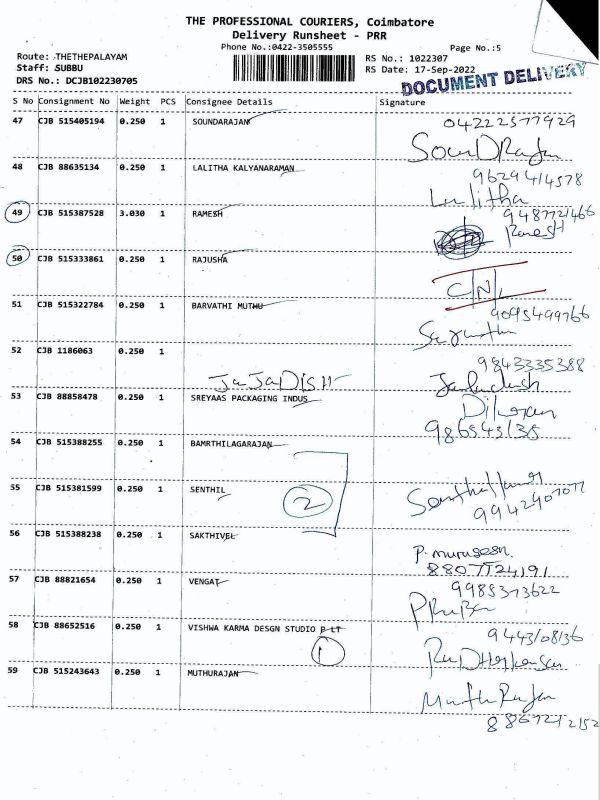 THE PROFESSIONAL COURIERS, Coimbatore
Delivery Runsheet - PRR
Phone No.:0422-3505555
Page No.:5
Route: THETHEPALAYAM
RS No.: 1022307
Staff: SUBBU
RS Date: 17-Sep-2022
DRS No.: DCJB102230705
DOCUMENT DELIVERY
S No Consignment No Weight PCS Consignee Details Signature
47 CJB 515405194 0.250 1 SOUNDARAJAN 04222577929
48 CJB 88635134 0.250 1 LALITHA KALYANARAMAN 9629414578
Lalitha
49 CJB 515387528 3.030 1 RAMESH 9487721466
Ramesh
50 CJB 515333861 0.250 1 RAJUSHA
C/N/L
51 CJB 515322784 0.250 1 BARVATHI MUTHU 9095499766
52 CJB 1186063 0.250 1 9843335388
JaJaDISH
53 CJB 88858478 0.250 1 SREYAAS PACKAGING INDUS
54 CJB 515388255 0.250 1 BAMRTHILAGARAJAN
55 CJB 515381599 0.250 1 SENTHIL 2 9942907077
56 CJB 515388238 0.250 1 SAKTHIVEL P. murugesan.
8807724191
57 CJB 88821654 0.250 1 VENGAT 9985373622
58 CJB 88652516 0.250 1 VISHWA KARMA DESGN STUDIO P LT 9443108136
1
59 CJB 515243643 0.250 1 MUTHURAJAN